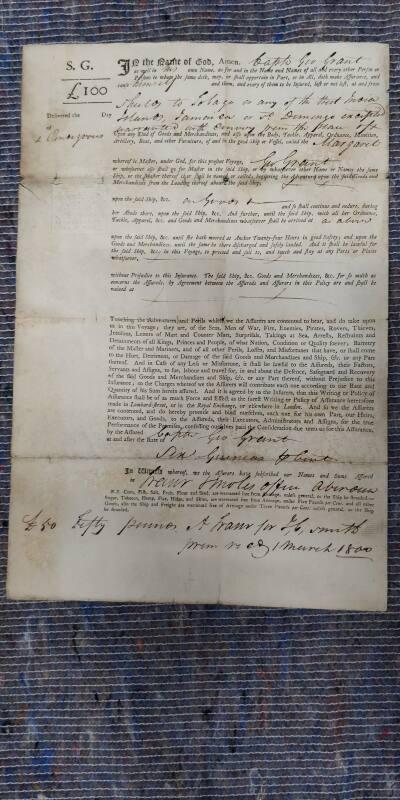 S. G.
£100
Delivered the Day
of
IN the Name of God, Amen. Captn Geo Grant
as well in his own Name, as for and in the Name and Names of all and every other Person or
Persons to whom the same doth, may, or shall appertain in Part, or in All, doth make Assurance, and
cause himself and them, and every of them to be Insured, lost or not lost, at and from
to Tobago or any of the West India
Islands, Jamaica or St Domingo excepted
warranted with Convoy from the place of
Upon any Kind of Goods and Merchandizes, and also upon the Body, Tackle, Apparel, Ordnance, Munition,
Artillery, Boat, and other Furniture, of and in the good Ship or Vessel, called the Margaret
whereof is Master, under God, for this present Voyage, Geo Grant
or whosoever else shall go for Master in the said Ship, or by whatsoever other Name or Names the same
Ship, or the Master thereof is or shall be named or called, beginning the Adventure upon the said Goods and
Merchandizes from the Loading thereof aboard the said Ship,
upon the said Ship, &c. on Goods and so shall continue and endure, during
her Abode there, upon the said Ship, &c. And further, until the said Ship, with all her Ordnance,
Tackle, Apparel, &c. and Goods and Merchandizes whatsoever shall be arrived at as above
upon the said Ship, &c. until she hath moored at Anchor Twenty-four Hours in good Safety; and upon the
Goods and Merchandizes, until the same be there discharged and safely landed. And it shall be lawful for
the said Ship, &c. in this Voyage, to proceed and sail to, and touch and stay at any Ports or Places
whatsoever,
without Prejudice to this Insurance. The said Ship, &c. Goods and Merchandizes, &c. for so much as
concerns the Assureds, by Agreement between the Assureds and Assurers in this Policy are and shall be
valued at
Touching the Adventures and Perils which we the Assurers are contented to bear, and do take upon
us in this Voyage; they are, of the Seas, Men of War, Fire, Enemies, Pirates, Rovers, Thieves,
Jettisons, Letters of Mart and Counter Mart, Surprisals, Takings at Sea, Arrests, Restraints and
Detainments of all Kings, Princes and People, of what Nation, Condition or Quality soever; Barratry
of the Master and Mariners, and of all other Perils, Losses, and Misfortunes that have, or shall come
to the Hurt, Detriment, or Damage of the said Goods and Merchandizes and Ship, &c. or any Part
thereof. And in Case of any Loss or Misfortune, it shall be lawful to the Assureds, their Factors,
Servants and Assigns, to sue, labour and travel for, in and about the Defence, Safeguard and Recovery
of the said Goods and Merchandizes and Ship, &c. or any Part thereof, without Prejudice to this
Insurance; to the Charges whereof we the Assurers will contribute each one according to the Rate and
Quantity of his Sum herein assured. And it is agreed by us the Insurers, that this Writing or Policy of
Assurance shall be of as much Force and Effect as the surest Writing or Policy of Assurance heretofore
made in Lombard-Street, or in the Royal Exchange, or elsewhere in London. And so we the Assurers
are contented, and do hereby promise and bind ourselves, each one for his own Part, our Heirs,
Executors, and Goods, to the Assureds, their Executors, Administrators and Assigns, for the true
Performance of the Premises, confessing ourselves paid the Consideration due unto us for this Assurance,
by the Assured Captn Geo Grant
at and after the Rate of Six Guineas pr Cent
In Witness whereof, we the Assurers have subscribed our Names and Sums assured
in office
N.B. Corn, Fish, Salt, Fruit, Flour and Seed, are warranted free from Average, unless general, or the Ship be stranded.—
Sugar, Tobacco, Hemp, Flax, Hides, and Skins, are warranted free from Average, under Five Pounds per Cent. and all other
Goods, also the Ship and Freight are warranted free of Average under Three Pounds per Cent. unless general, or the Ship
be stranded.
£50 Fifty pounds Smith
prem rec'd 1 March 1800